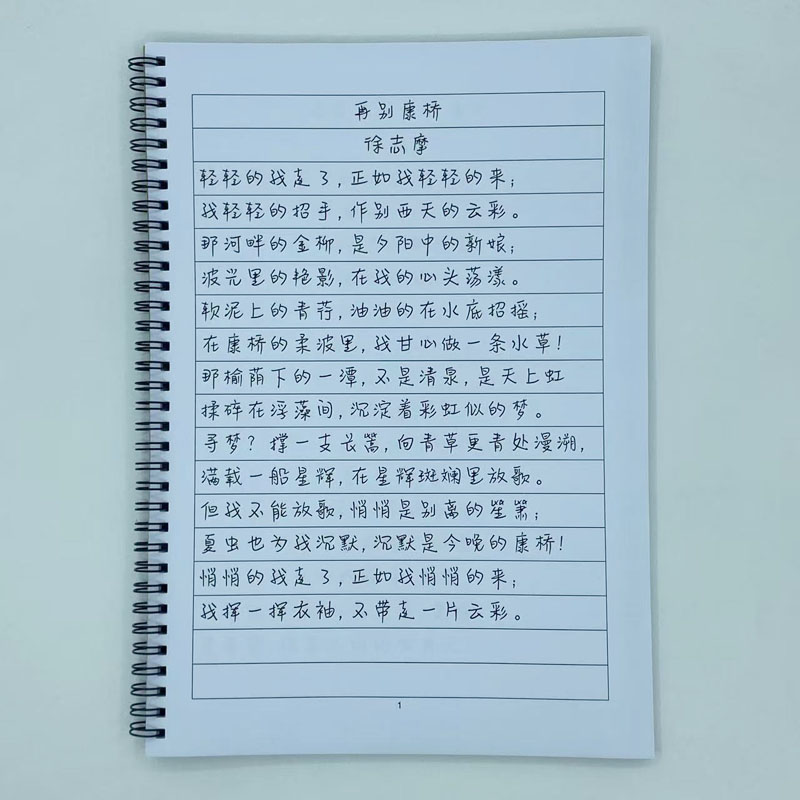 再别康桥
徐志摩
轻轻的我走了,正如我轻轻的来;
我轻轻的招手,作别西天的云彩。
那河畔的金柳,是夕阳中的新娘;
波光里的艳影,在我的心头荡漾。
软泥上的青荇,油油的在水底招摇;
在康桥的柔波里,我甘心做一条水草!
那榆荫下的一潭,不是清泉,是天上虹
揉碎在浮藻间,沉淀着彩虹似的梦。
寻梦?撑一支长篙,向青草更青处漫溯,
满载一船星辉,在星辉斑斓里放歌。
但我不能放歌,悄悄是别离的笙箫;
夏虫也为我沉默,沉默是今晚的康桥!
悄悄的我走了,正如我悄悄的来;
我挥一挥衣袖,不带走一片云彩。
1